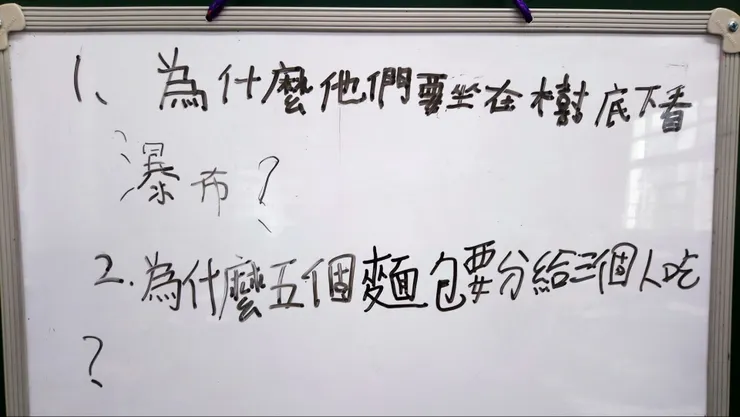 1、為什麼他們要坐在樹底下看
瀑布?
2.為什麼五個麵包要分給三個人吃
?